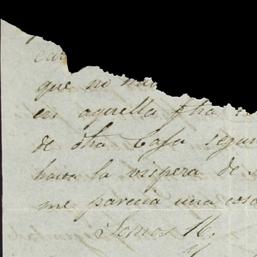 que no
en aquella fha
de otra Casa segun
hasta la vispera de
me parecia una cosa
Somos 16.